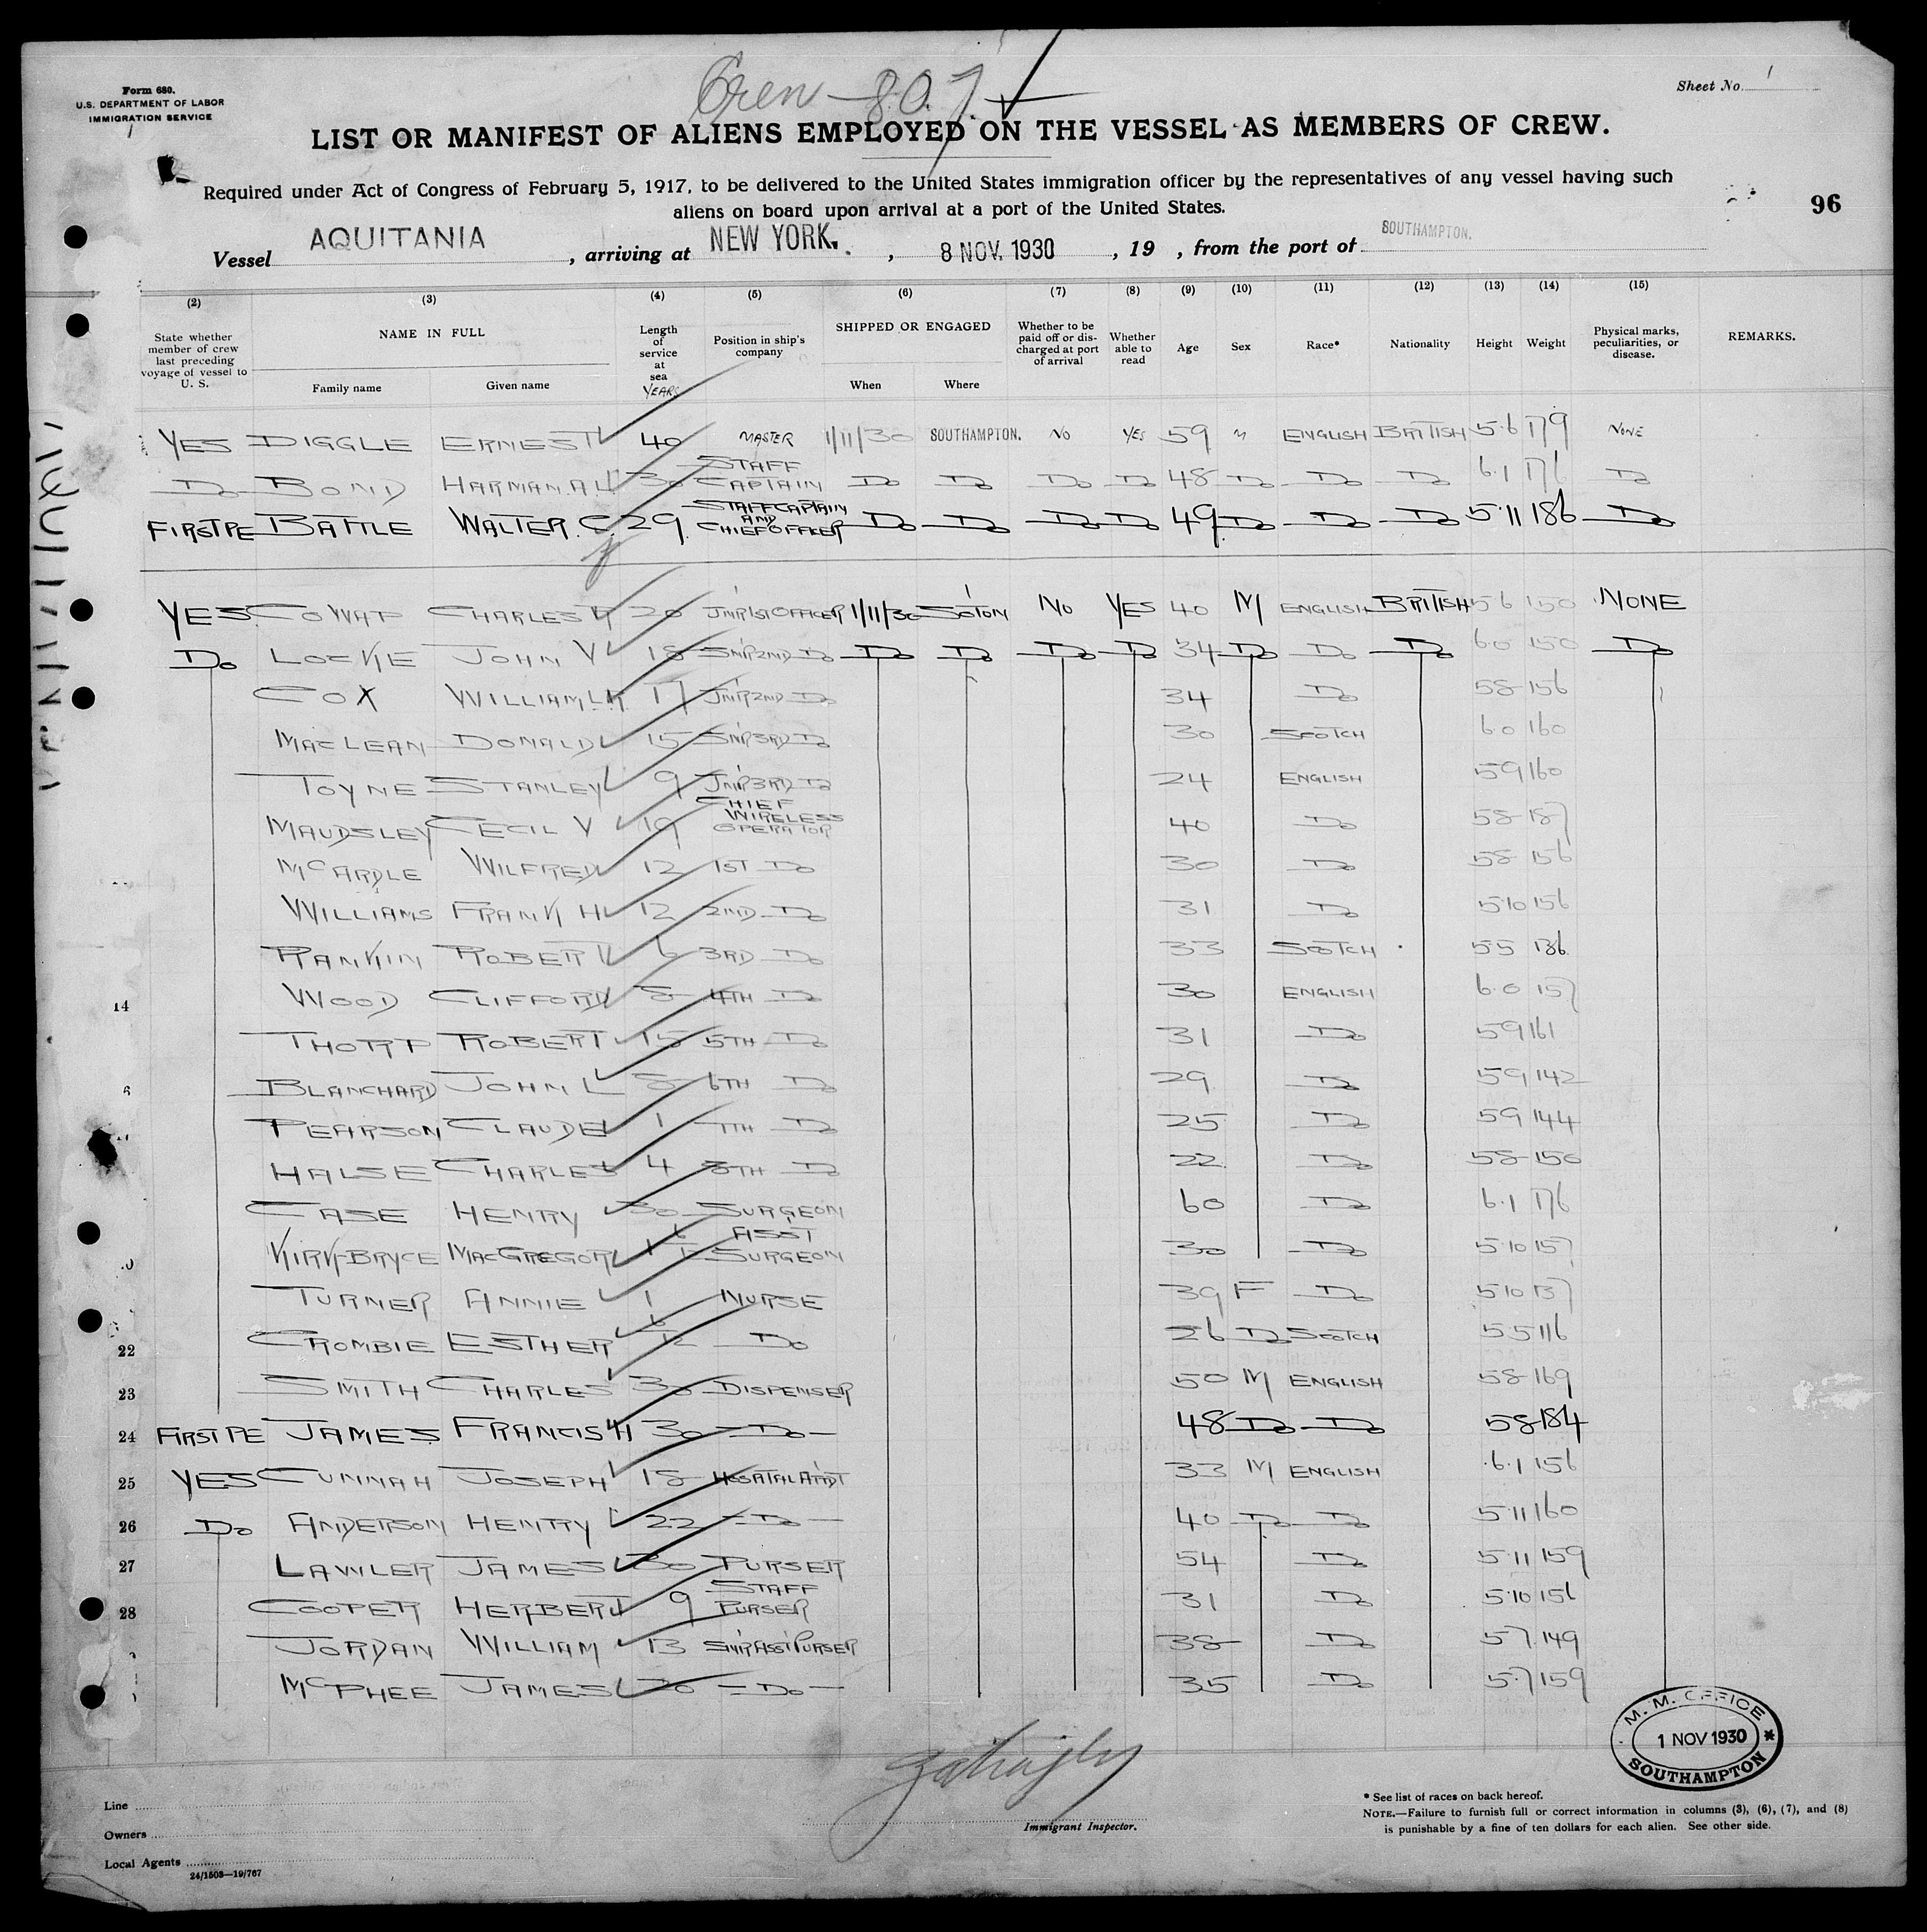 Form 680.
U.S. DEPARTMENT OF LABOR
IMMIGRATION SERVICE
Crew - 807
Sheet No. 1
LIST OR MANIFEST OF ALIENS EMPLOYED ON THE VESSEL AS MEMBERS OF CREW.
Required under Act of Congress of February 5, 1917, to be delivered to the United States immigration officer by the representatives of any vessel having such
aliens on board upon arrival at a port of the United States.
96
Vessel AQUITANIA, arriving at NEW YORK., 8 NOV. 1930, 19 , from the port of SOUTHAMPTON.
(2) (3) (4) (5) (6) (7) (8) (9) (10) (11) (12) (13) (14) (15)
State whether member of crew last preceding voyage of vessel to U. S. NAME IN FULL Family name Given name Length of service at sea YEARS Position in ship's company SHIPPED OR ENGAGED When Where Whether to be paid off or discharged at port of arrival Whether able to read Age Sex Race* Nationality Height Weight Physical marks, peculiarities, or disease. REMARKS.
YES DIGGLE ERNEST 40 MASTER 1/11/30 SOUTHAMPTON. NO YES 59 M ENGLISH BRITISH 5.6 179 NONE
Do BOND HARMAN.A. 30 STAFF CAPTAIN Do Do Do Do 48 Do Do Do 6.1 176 Do
FIRST PE BATTLE WALTER. C. 29. STAFF CAPTAIN AND CHIEF OFFICER Do Do Do Do 49 Do Do Do 5.11 186 Do
YES COWAP CHARLES 20 JNR 1ST OFFICER 1/11/30 SOTON NO YES 40 M ENGLISH BRITISH 5 6 150 NONE
Do LOCKE JOHN V 18 SNR 2ND Do Do Do Do Do 34 Do Do Do 6.0 150 Do
COX WILLIAM 17 JNR 2ND Do 34 Do 5 8 156
MACLEAN DONALD 15 SNR 3RD Do 30 SCOTCH 6.0 160
TOYNE STANLEY 9 JNR 3RD Do 24 ENGLISH 5 9 160
MAUDSLEY CECIL V 19 CHIEF WIRELESS OPERATOR 40 Do 5 8 187
McARDLE WILFRED 12 1ST Do 30 Do 5 8 156
WILLIAMS FRANK H 12 2ND Do 31 Do 5.10 156
RANKIN ROBERT 6 3RD Do 33 SCOTCH 5 5 136
14 WOOD CLIFFORD 8 4TH Do 30 ENGLISH 6.0 157
THORP ROBERT 15 5TH Do 31 Do 5 9 161
6 BLANCHARD JOHN L 8 6TH Do 29 Do 5 9 142
PEARSON CLAUDE 1 7TH Do 25 Do 5 9 144
HALSE CHARLES 4 8TH Do 22 Do 5 8 150
CASE HENRY 30 SURGEON 60 Do 6.1 176
KIRK-BRYCE MACGREGOR ASST SURGEON 30 Do 5.10 157
TURNER ANNIE 1 NURSE 39 F Do 5 10 137
22 CROMBIE ESTHER 6/12 Do 26 Do SCOTCH 5.5 116
23 SMITH CHARLES 30 DISPENSER 50 M ENGLISH 5 8 169
24 FIRST PE JAMES FRANCIS H 30 Do 48 Do Do 5 8 184
25 YES CUNNAH JOSEPH 18 HOSPITAL ATTDT 33 M ENGLISH 6.1 156
26 Do ANDERSON HENRY 22 Do 40 Do Do 5.11 160
27 LAWLER JAMES 30 PURSER 54 Do 5.11 159
28 COOPER HERBERT 9 STAFF PURSER 31 Do 5.10 156
JORDAN WILLIAM 13 SNR ASST PURSER 38 Do 5.7 149
McPHEE JAMES 20 Do 35 Do 5.7 159
M. M. OFFICE
1 NOV 1930
SOUTHAMPTON
Line
Owners
Local Agents
24/1503—19/767
Immigrant Inspector.
* See list of races on back hereof.
NOTE.—Failure to furnish full or correct information in columns (3), (6), (7), and (8)
is punishable by a fine of ten dollars for each alien. See other side.